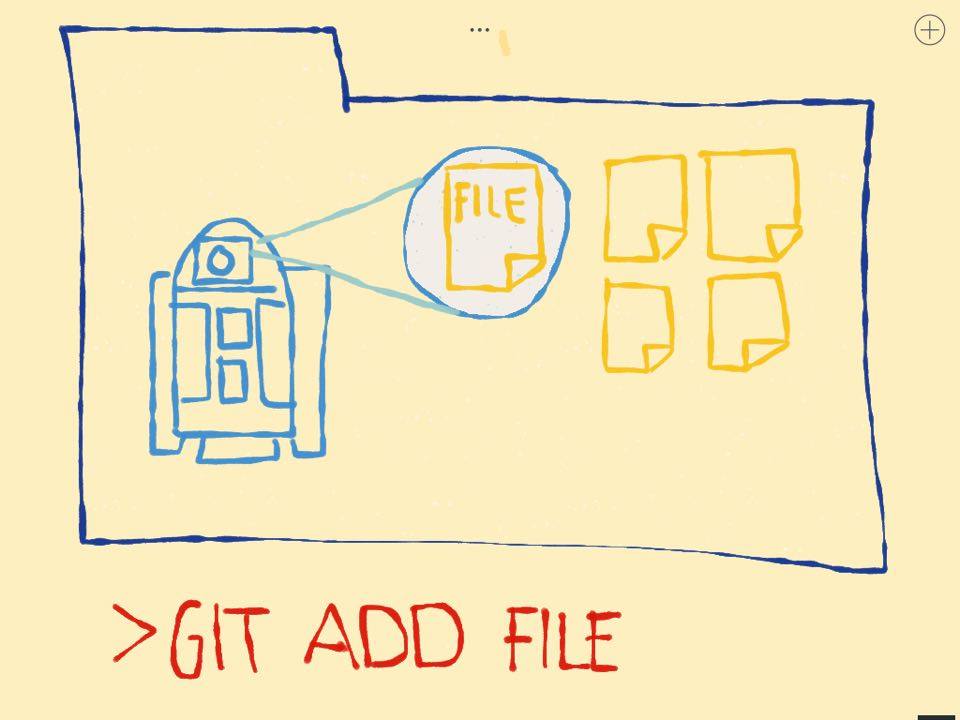 FILE
>GIT ADD FILE